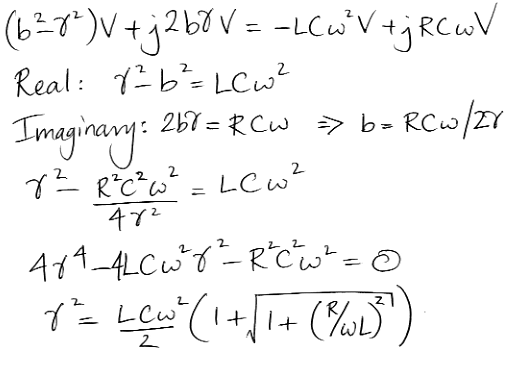 (b²-γ²)V + j2bγV = -LCω²V + jRCωV
Real: γ²-b² = LCω²
Imaginary: 2bγ = RCω ⇒ b = RCω/2γ
γ² - R²C²ω²/4γ² = LCω²
4γ⁴-4LCω²γ²-R²C²ω² = 0
γ² = LCω²/2 (1+√(1+(R/ωL)²))